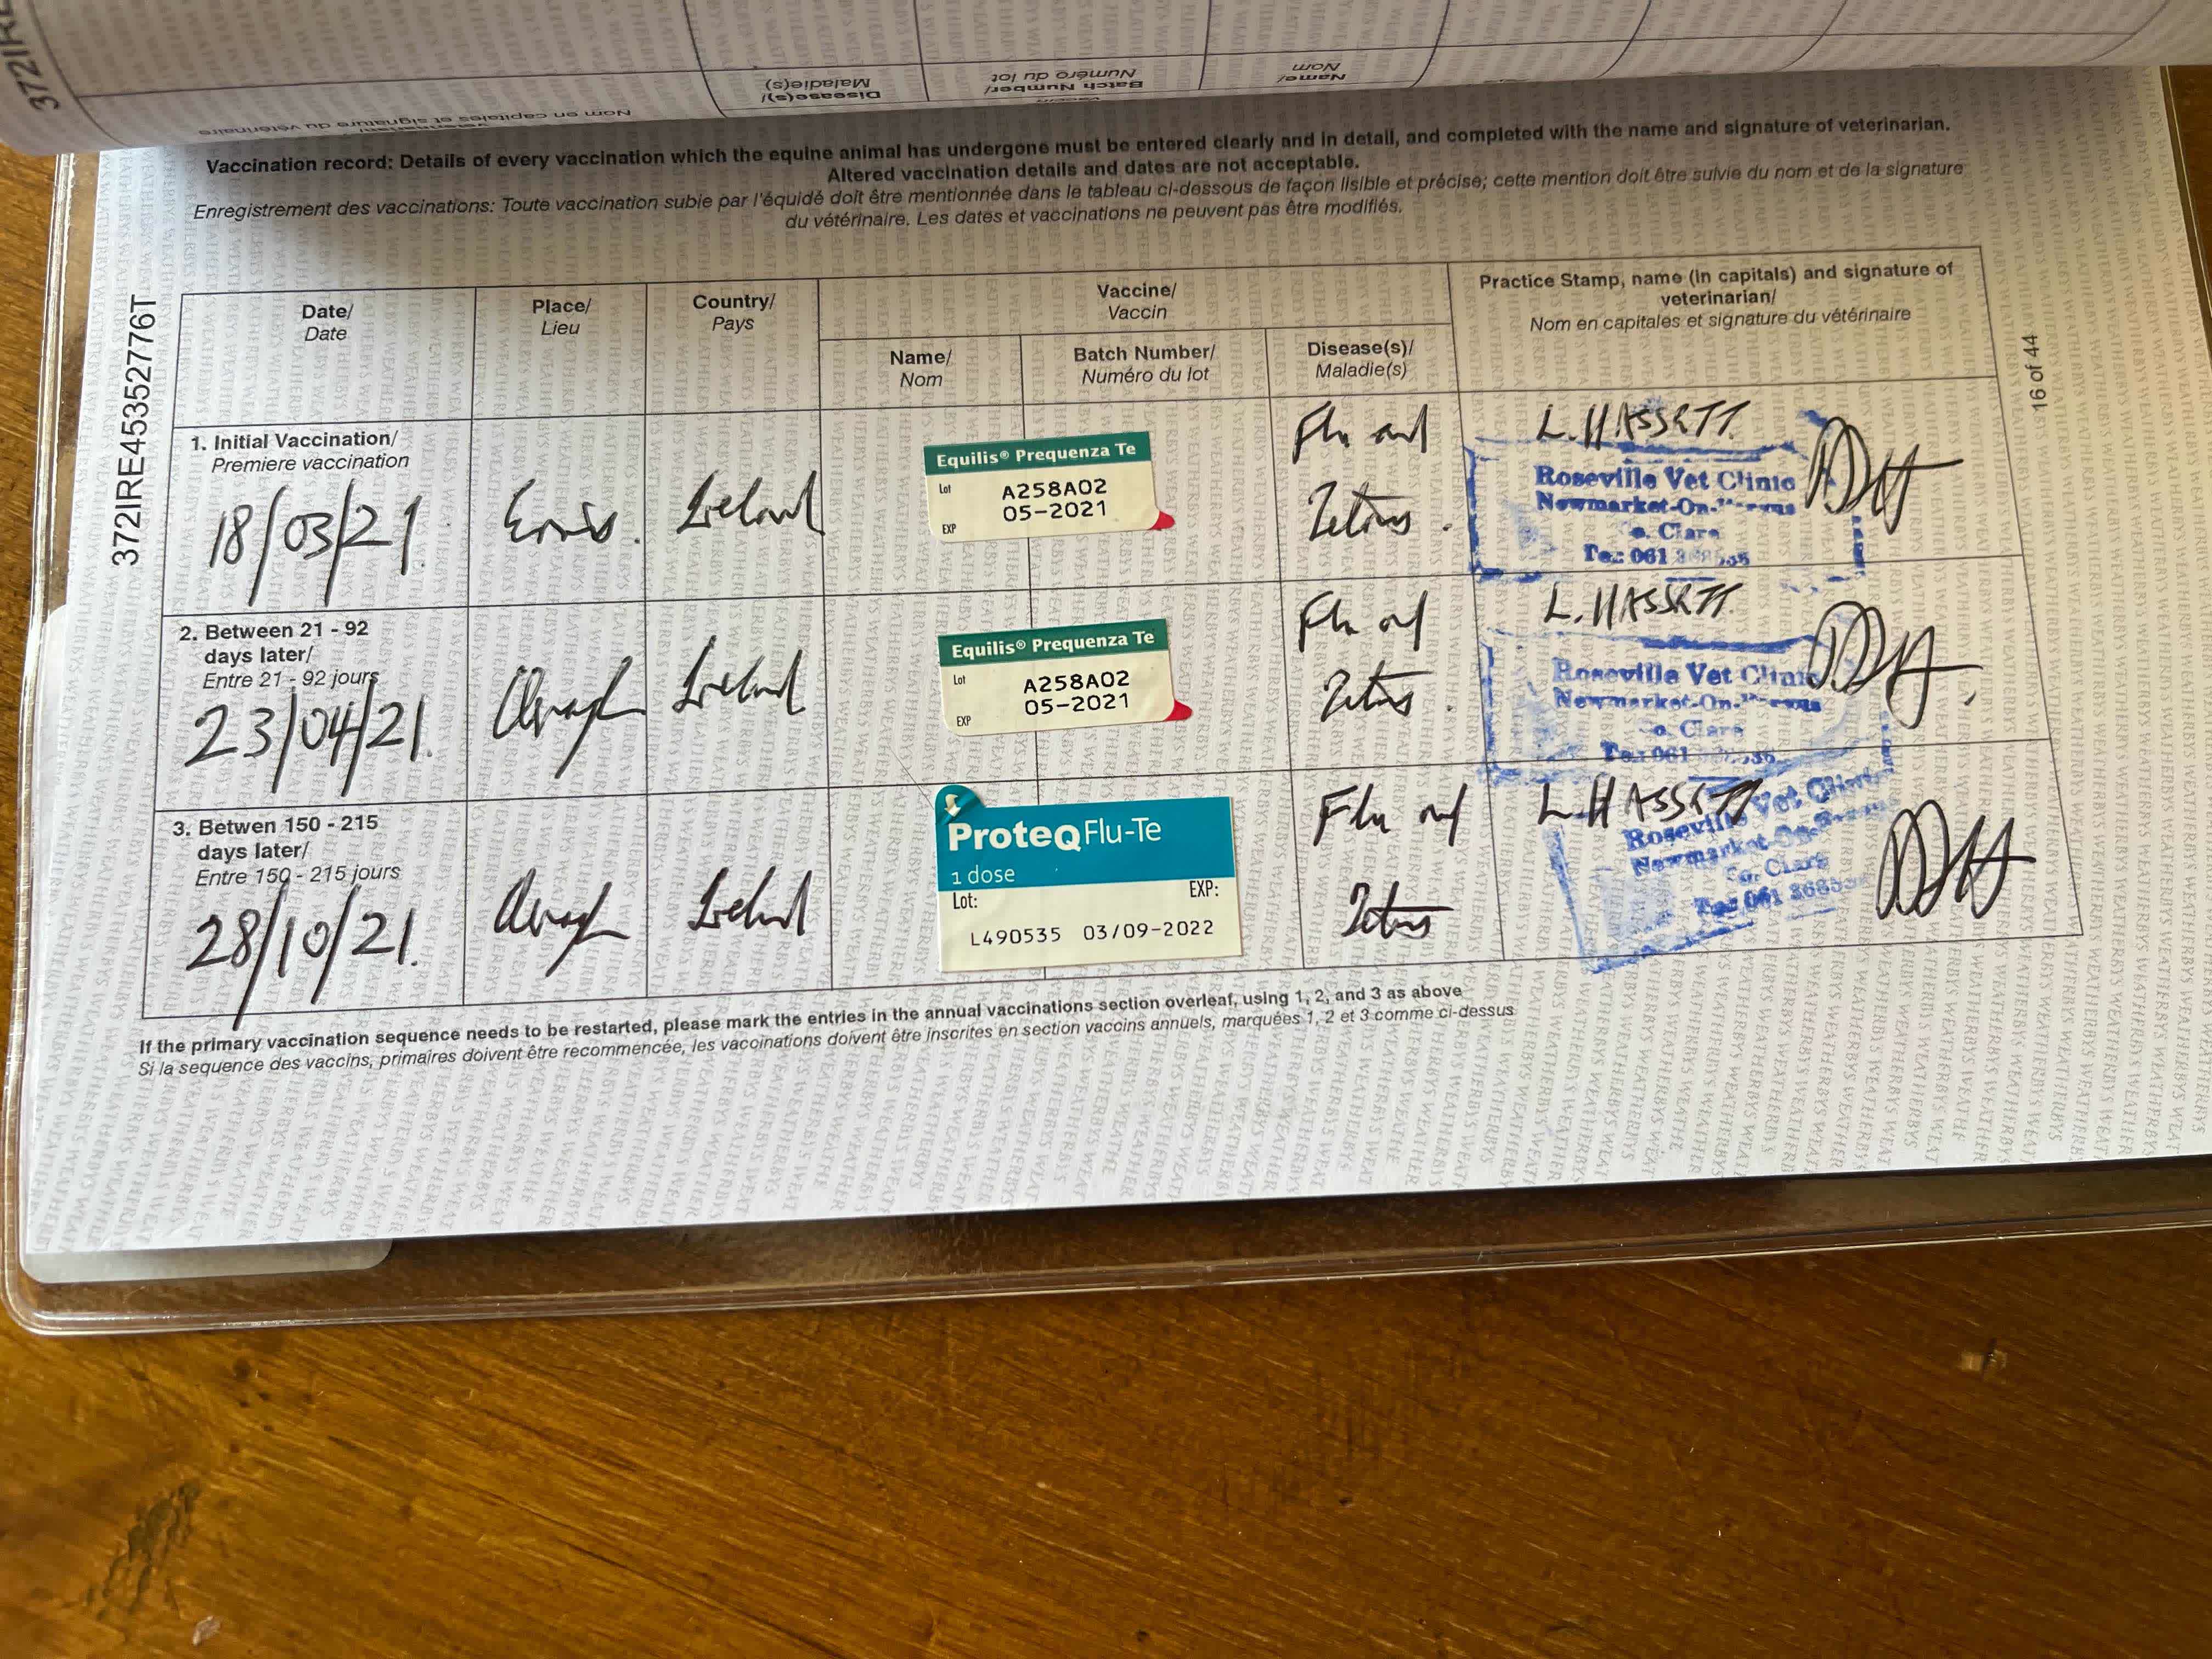 372IRE
Nom en capitales et signature du vétérinaire
Disease(s)/
Maladie(s)
Vaccin
Batch Number/
Numéro du lot
Name/
Nom
Vaccination record: Details of every vaccination which the equine animal has undergone must be entered clearly and in detail, and completed with the name and signature of veterinarian.
Altered vaccination details and dates are not acceptable.
Enregistrement des vaccinations: Toute vaccination subie par l'équidé doit être mentionnée dans le tableau ci-dessous de façon lisible et précise; cette mention doit être suivie du nom et de la signature
du vétérinaire. Les dates et vaccinations ne peuvent pas être modifiés.
372IRE45352776T
16 of 44
Date/
Date
Place/
Lieu
Country/
Pays
Vaccine/
Vaccin
Name/
Nom
Batch Number/
Numéro du lot
Disease(s)/
Maladie(s)
Practice Stamp, name (in capitals) and signature of
veterinarian/
Nom en capitales et signature du vétérinaire
1. Initial Vaccination/
Premiere vaccination
18/03/21.
Ennis.
Ireland
Equilis® Prequenza Te
Lot A258A02
EXP 05-2021
Flu and
Tetnus.
L. HASSETT
Roseville Vet Clinic
Newmarket-On-
Co. Clare
Tel: 061
2. Between 21 - 92
days later/
Entre 21 - 92 jours
23/04/21.
Ireland
Equilis® Prequenza Te
Lot A258A02
EXP 05-2021
Flu and
Tetnus.
L. HASSETT
Roseville Vet Clinic
Newmarket-On-
Co. Clare
Tel: 061
3. Betwen 150 - 215
days later/
Entre 150 - 215 jours
28/10/21.
Ireland
ProteqFlu-Te
1 dose
Lot: EXP:
L490535 03/09-2022
Flu and
Tetnus
L. HASSETT
Roseville Vet Clinic
Newmarket-On-
Co. Clare
Tel: 061
If the primary vaccination sequence needs to be restarted, please mark the entries in the annual vaccinations section overleaf, using 1, 2, and 3 as above
Si la sequence des vaccins, primaires doivent être recommencée, les vaccinations doivent être inscrites en section vaccins annuels, marquées 1, 2 et 3 comme ci-dessus